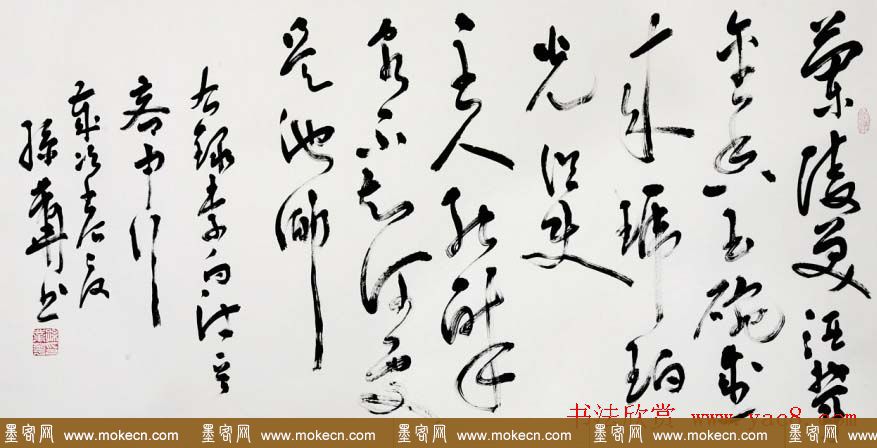 蘭陵美酒鬱
金香玉碗盛
来琥珀
光但使
主人能醉
客不知何處
是他鄉
右録李白詩
客中行
歲次
孫
书
书法欣赏 www.yac8.com
墨客网 www.mokecn.com 墨客网 www.mokecn.com 墨客网 www.mokecn.com 墨客网 www.mokecn.com 墨客网